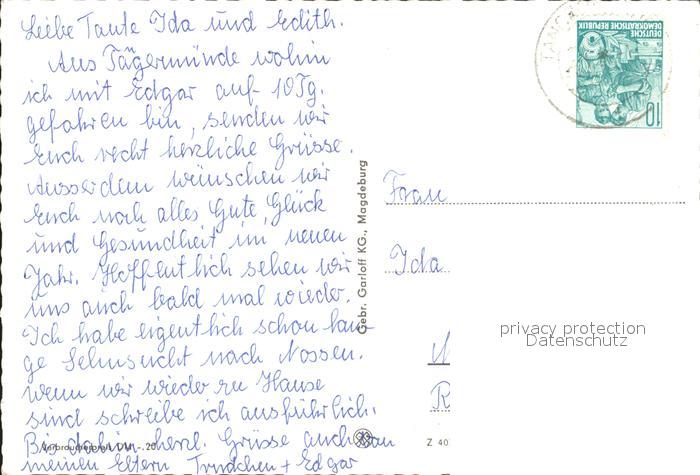 Liebe Tante Ida und Edith.
Aus Tägermünde wohin
ich mit Edgar auf 10 Tg.
gefahren bin, senden wir
Euch recht herzliche Grüsse.
Ausserdem wünschen wir
Euch noch alles Gute, Glück
und Gesundheit im neuen
Jahr. Hoffentlich sehen wir
uns auch bald mal wieder.
Ich habe eigentlich schon lan-
ge Sehnsucht nach Nossen.
Wenn wir wieder zu Hause
sind schreibe ich ausführlich.
Bis dahin herzl. Grüsse auch von
meinen Eltern Trudchen + Edgar
Verbraucherpreis DM -.20
Gebr. Garloff KG., Magdeburg
DEUTSCHE
DEMOKRATISCHE REPUBLIK
10
TANG
Frau
Ida
privacy protection
Datenschutz
N
R
Z 40